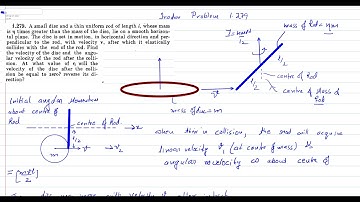 Irodov Problem 1.279
1.279. A small disc and a thin uniform rod of length l, whose mass
is η times greater than the mass of the disc, lie on a smooth horizon-
tal plane. The disc is set in motion, in horizontal direction and per-
pendicular to the rod, with velocity v, after which it elastically
collides with the end of the rod. Find
the velocity of the disc and the angu-
lar velocity of the rod after the colli-
sion. At what value of η will the
velocity of the disc after the colli-
sion be equal to zero? reverse its di-
rection?
mass of Rod = ηm
l/2
l/2
centre of Rod
centre of Mass of Rod
L
mass of disc = m
Initial angular momentum
about centre of
Rod
centre of Rod
l/2
m
when there is collision, the rod will acquire
linear velocity v1 (at centre of mass) &
angular velocity ω about centre of
= [mvl/2]